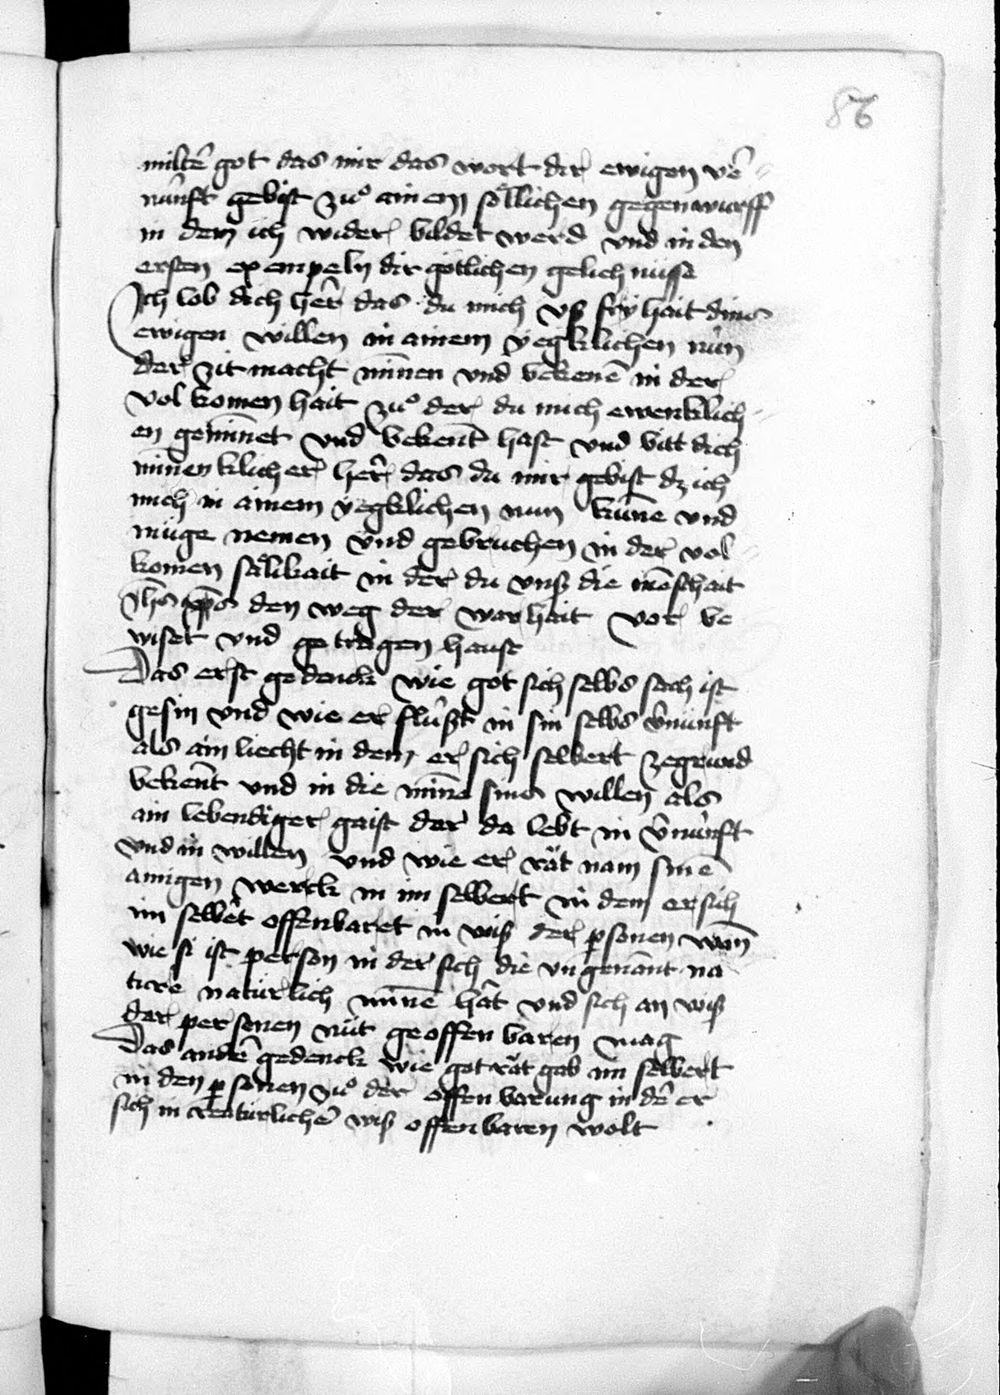 86
miltē got das mir das wort dir ewigen vē
nūnft gebist zuͦ ainem soͤllichen gegenwurff
in dem ich wider bildet werd vnd in den
ersten exempeln dir goͤtlichen gelichnüsse
Ich lob dich her̄ das du mich vß fryhait dins
ewigen willen in ainem yegklichen nŭn
der zit macht minnen vnd bekenē in der
volkomenhait zuͦ der du mich ewenklich
en geminnet vnd bekent hast vnd bitt dich
minnenklicher her̄ das du mir gebist dz ich
mich in ainem yegklichen nun kūne vnd
müge nemen vnd gebruchen in der vol
komen saͤlikait in der du vnß die mēschait
ih̄s xp̄s den weg der warhait vor be
wiset vnd getragen haust
Das erst gedenck wie got sich selbs sach ist
gesin vnd wie er flüßt in sin selbs v̄nunft
als ain liecht in dem er sich selbert zegrund
bekent vnd in die minne sines willen als
ain lebendiger gaist der da lebt in v̄nŭnft
vnd in willen vnd wie er raͤt nam sinē
ainigen werck in im selbert in dem er sich
im selbēt offenbaret in wiß der p̱sonen wan̄
wie si ist person in der sich die vngenant na
ture natürlich minnē hāt vnd sich an wiß
der personen nüt geoffenbaren mag
Das andē gedenck wie got raͤt gab im selbert
in den p̱sonen zuͦ der offenbarung in dē er
sich in creatürlichē wiß offenbaren wolt